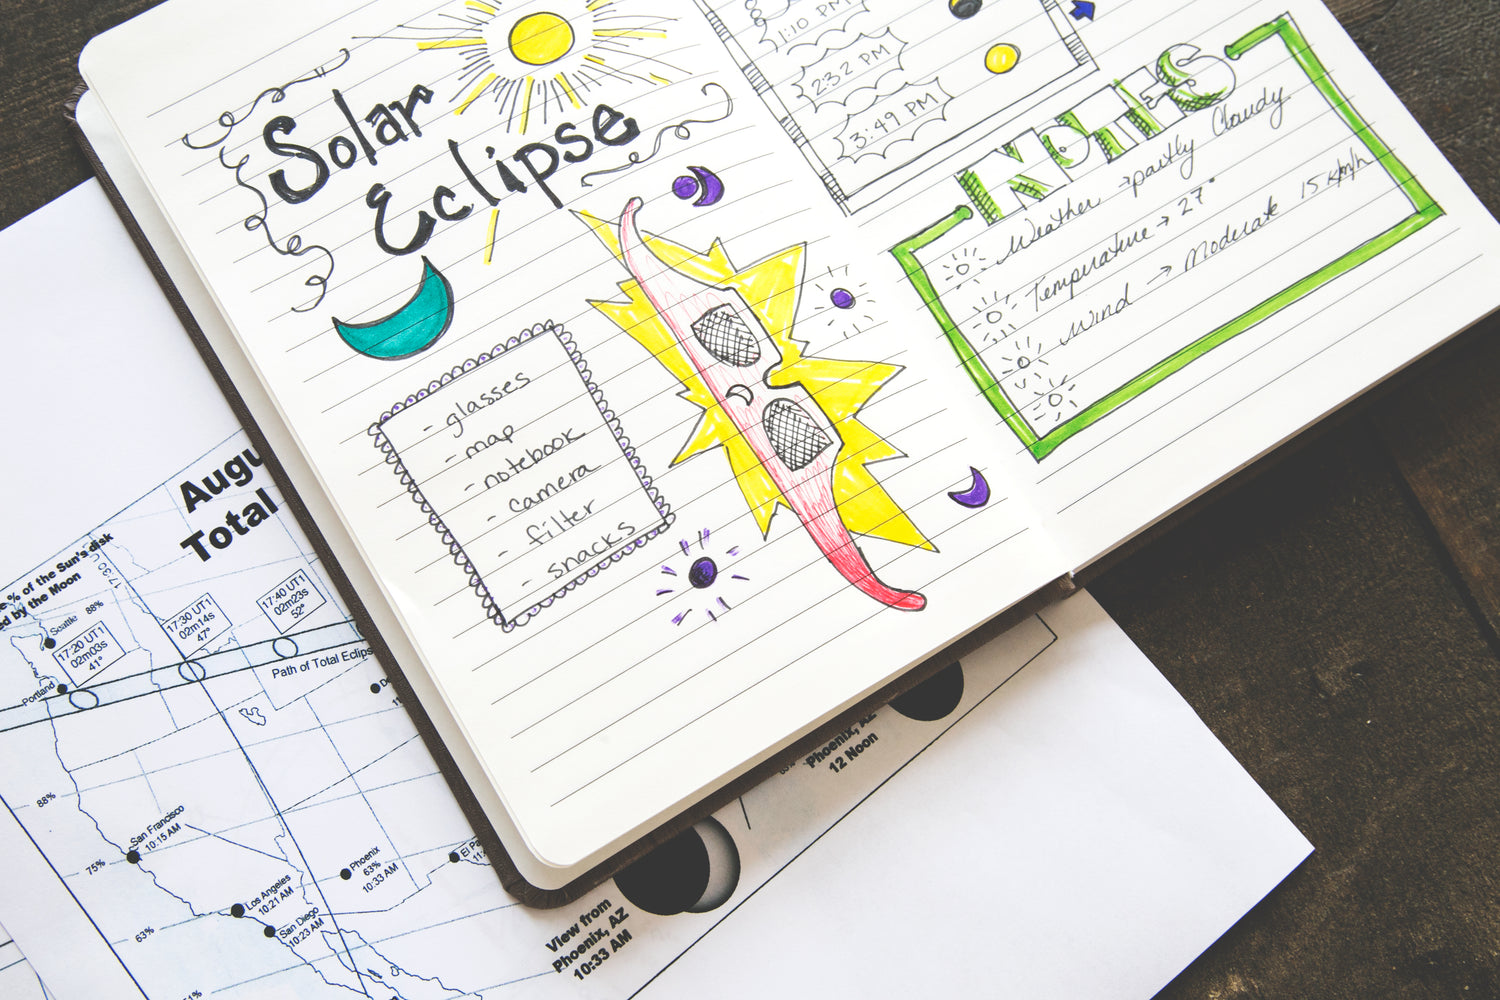 Solar
Eclipse
- glasses
- map
- notebook
- camera
- filter
- snacks
1:10 PM
2:32 PM
3:49 PM
NOTES
Weather → partly Cloudy
Temperature → 27°
Wind → Moderate 15 km/h
Augu
Total
% of the Sun's disk
ed by the Moon
17:30 U
Seattle 88%
17:20 UT1
02m03s
41°
17:30 UT1
02m14s
47°
17:40 UT1
02m23s
52°
Portland
Path of Total Eclips
88%
San Francisco
10:15 AM
75%
Phoenix
63%
10:33 AM
El Pa
11:
Los Angeles
10:21 AM
San Diego
10:23 AM
63%
51%
Phoenix, AZ
12 Noon
View from
Phoenix, AZ
10:33 AM